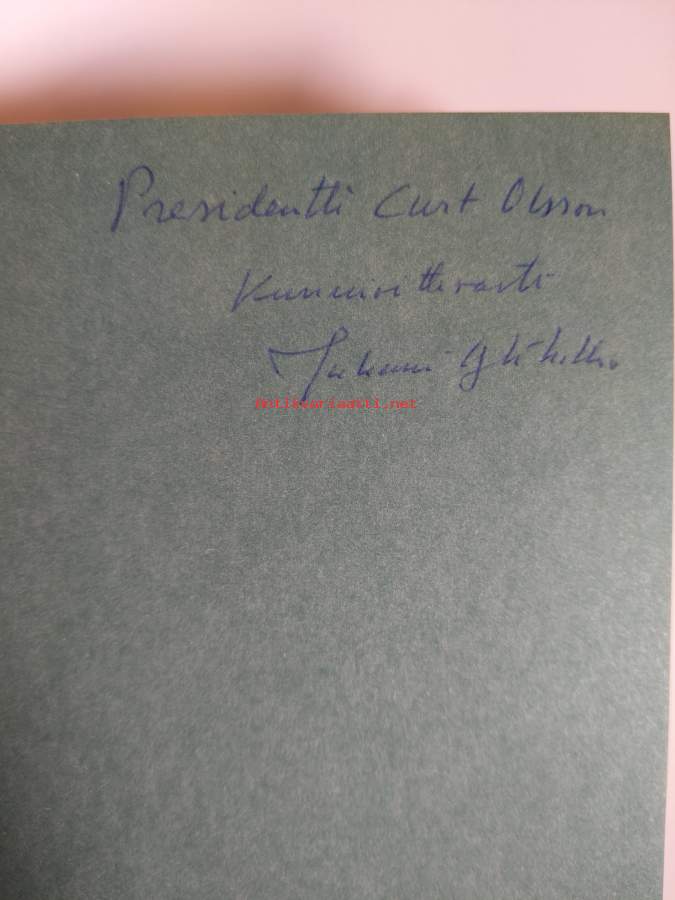 Presidentti Curt Olsson
Kunnioittavasti
Juhani
antikvariaatti.net